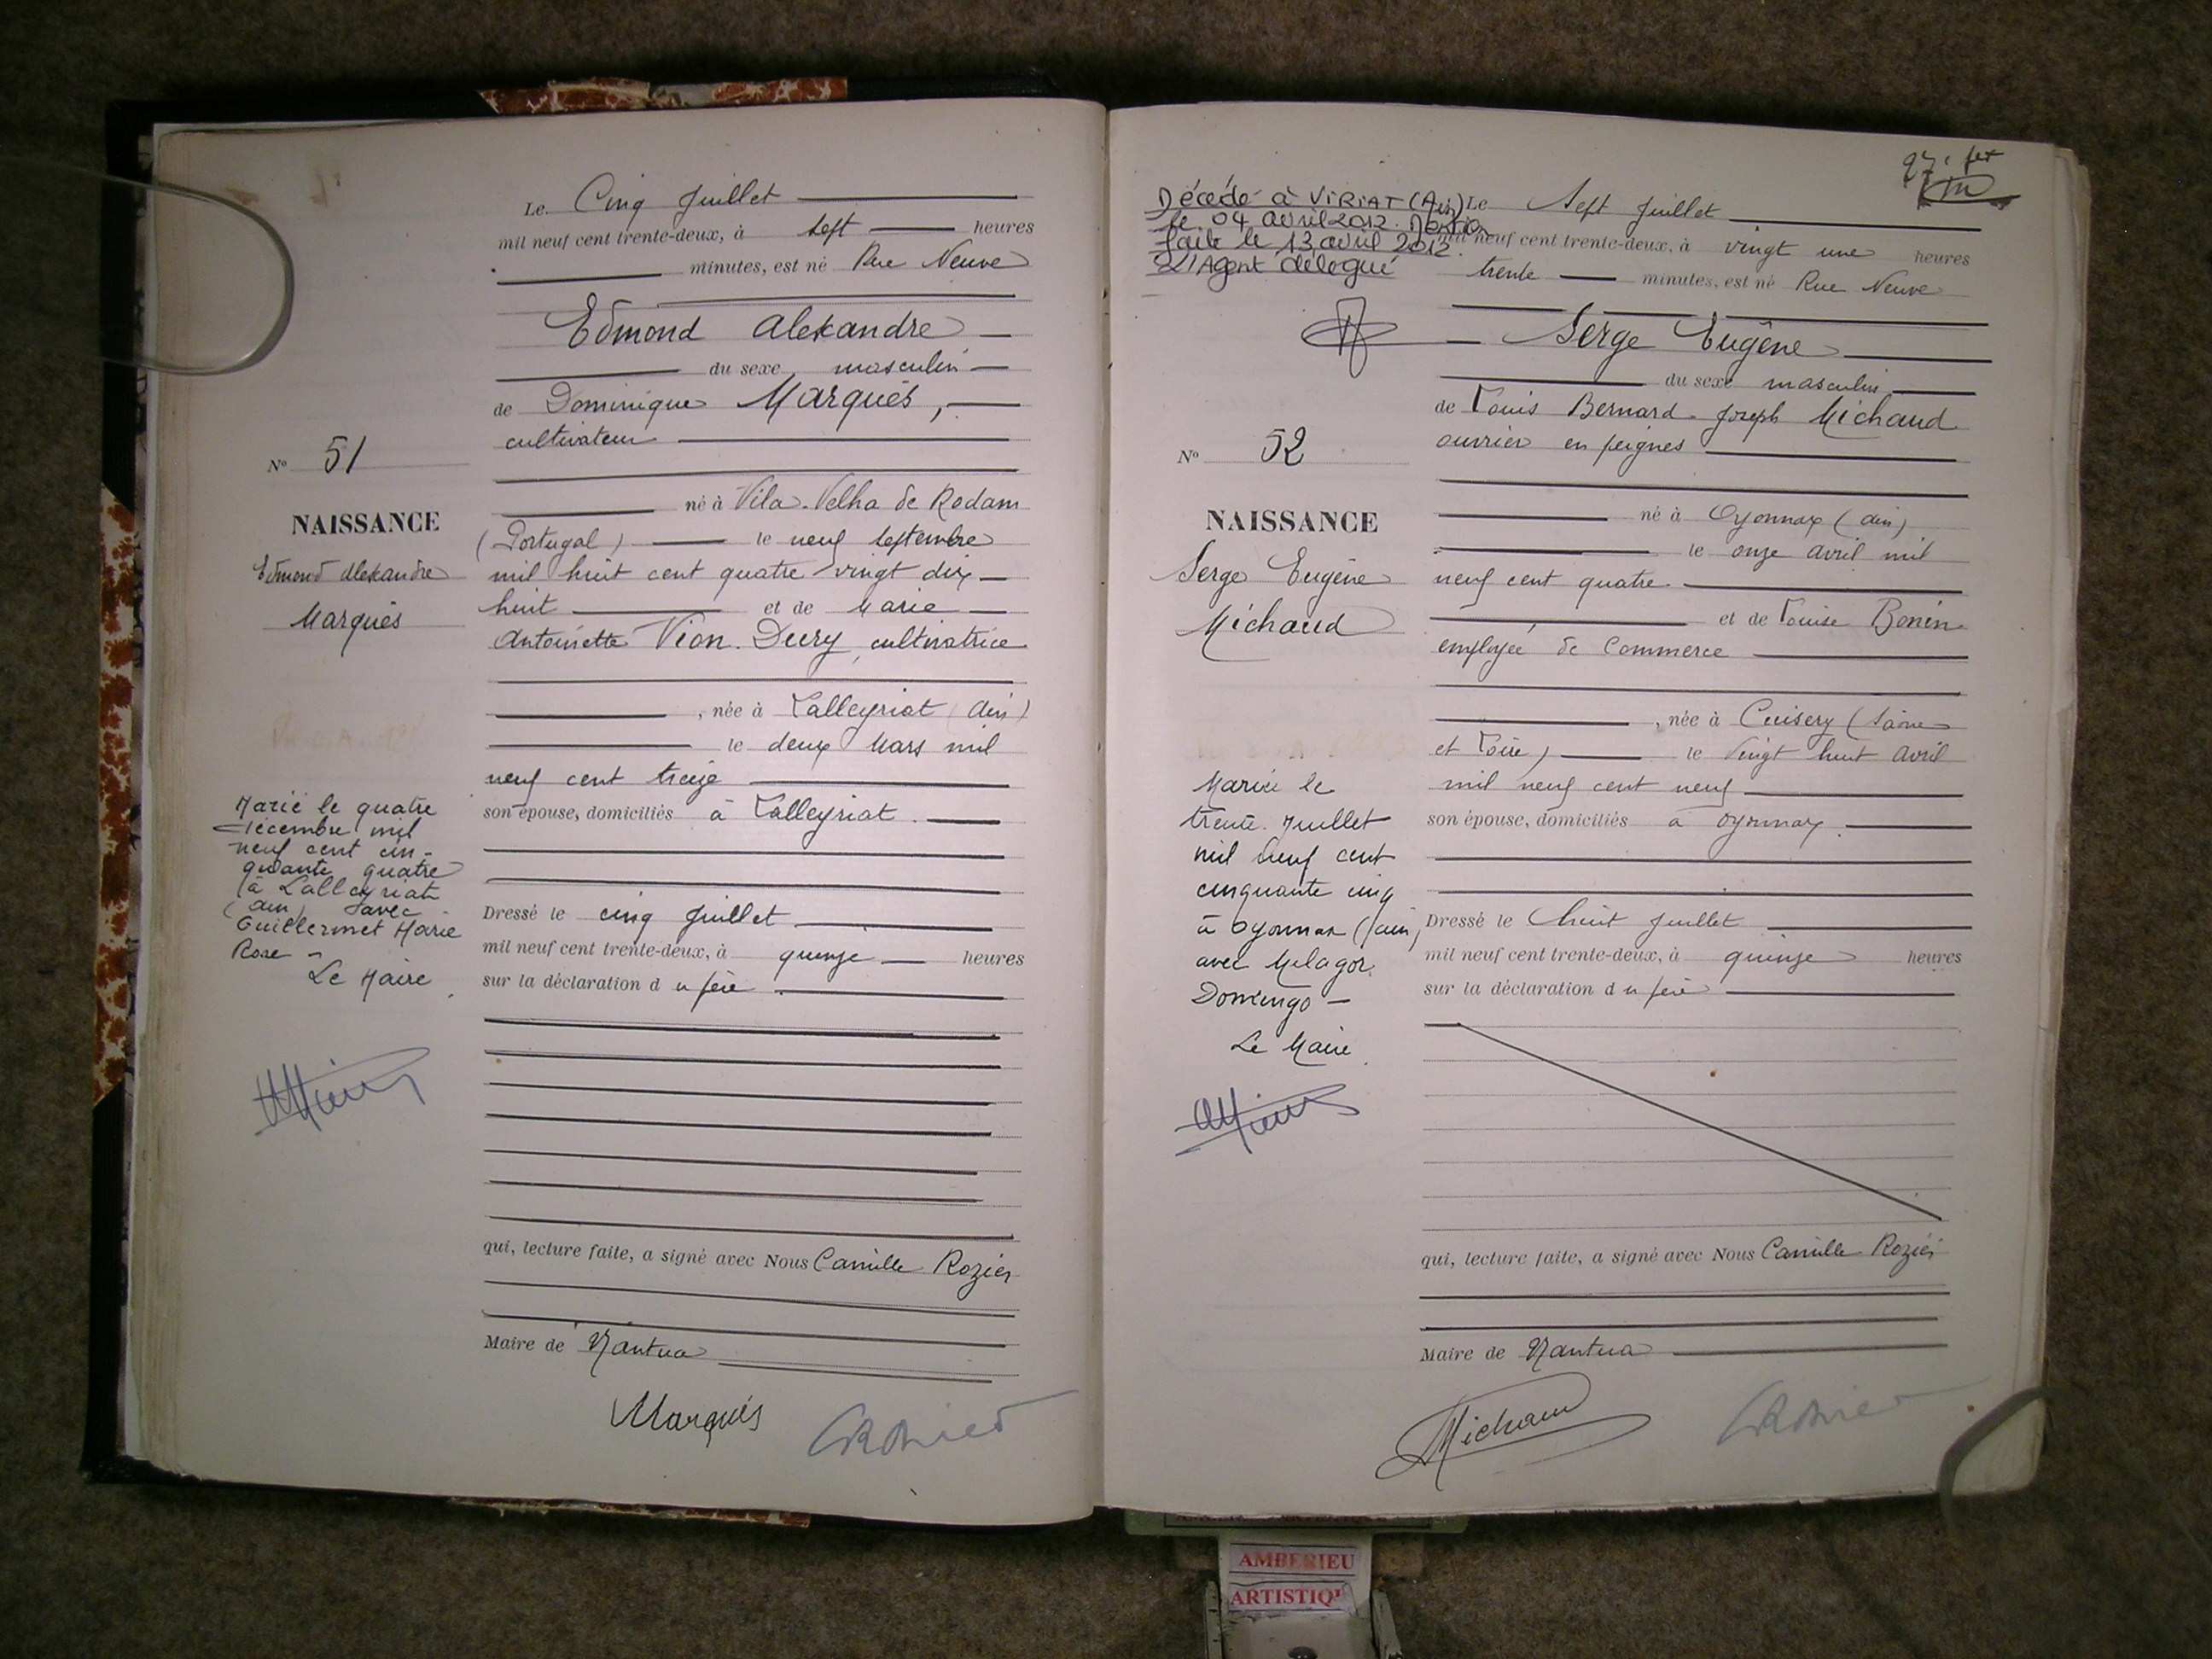 Le Cinq Juillet
mil neuf cent trente-deux, à sept heures
minutes, est né Rue Neuve
Edmond Alexandre
du sexe masculin
de Dominique Marquès,
cultivateur
né à Vila-Velha de Rodam
(Portugal) le neuf Septembre
mil huit cent quatre vingt dix
huit et de Marie
Antoinette Vion-Dury, cultivatrice
, née à Lalleyriat (Ain)
le deux Mars mil
neuf cent treize
son épouse, domiciliés à Lalleyriat.
Dressé le cinq Juillet
mil neuf cent trente-deux, à quinze heures
sur la déclaration du père
qui, lecture faite, a signé avec Nous Camille Rozier
Maire de Nantua
Marquès
N° 51
NAISSANCE
Edmond Alexandre
Marquès
Marié le quatre
décembre mil
neuf cent cin-
quante quatre
à Lalleyriat
(ain) avec
Guillermet Marie
Rose -
Le Maire
Décédé à VIRIAT (Ain)
le 04 avril 2012.
faite le 13 avril 2012.
L'Agent délégué
Le Sept Juillet
mil neuf cent trente-deux, à vingt une heures
trente minutes, est né Rue Neuve
Serge Eugène
du sexe masculin
de Louis Bernard Joseph Michaud
ouvrier en peignes
né à Oyonnax (Ain)
le onze Avril mil
neuf cent quatre
et de Louise Bonin
employée de Commerce
, née à Cuisery (Saône
et Loire) le Vingt huit Avril
mil neuf cent neuf
son épouse, domiciliés à Oyonnax.
Dressé le huit Juillet
mil neuf cent trente-deux, à quinze heures
sur la déclaration du père
qui, lecture faite, a signé avec Nous Camille Rozier
Maire de Nantua
Michaud
N° 52
NAISSANCE
Serge Eugène
Michaud
Marié le
trente Juillet
mil neuf cent
cinquante cinq
à Oyonnax (Ain)
avec
Domingo -
Le Maire
AMBERIEU
ARTISTIQ